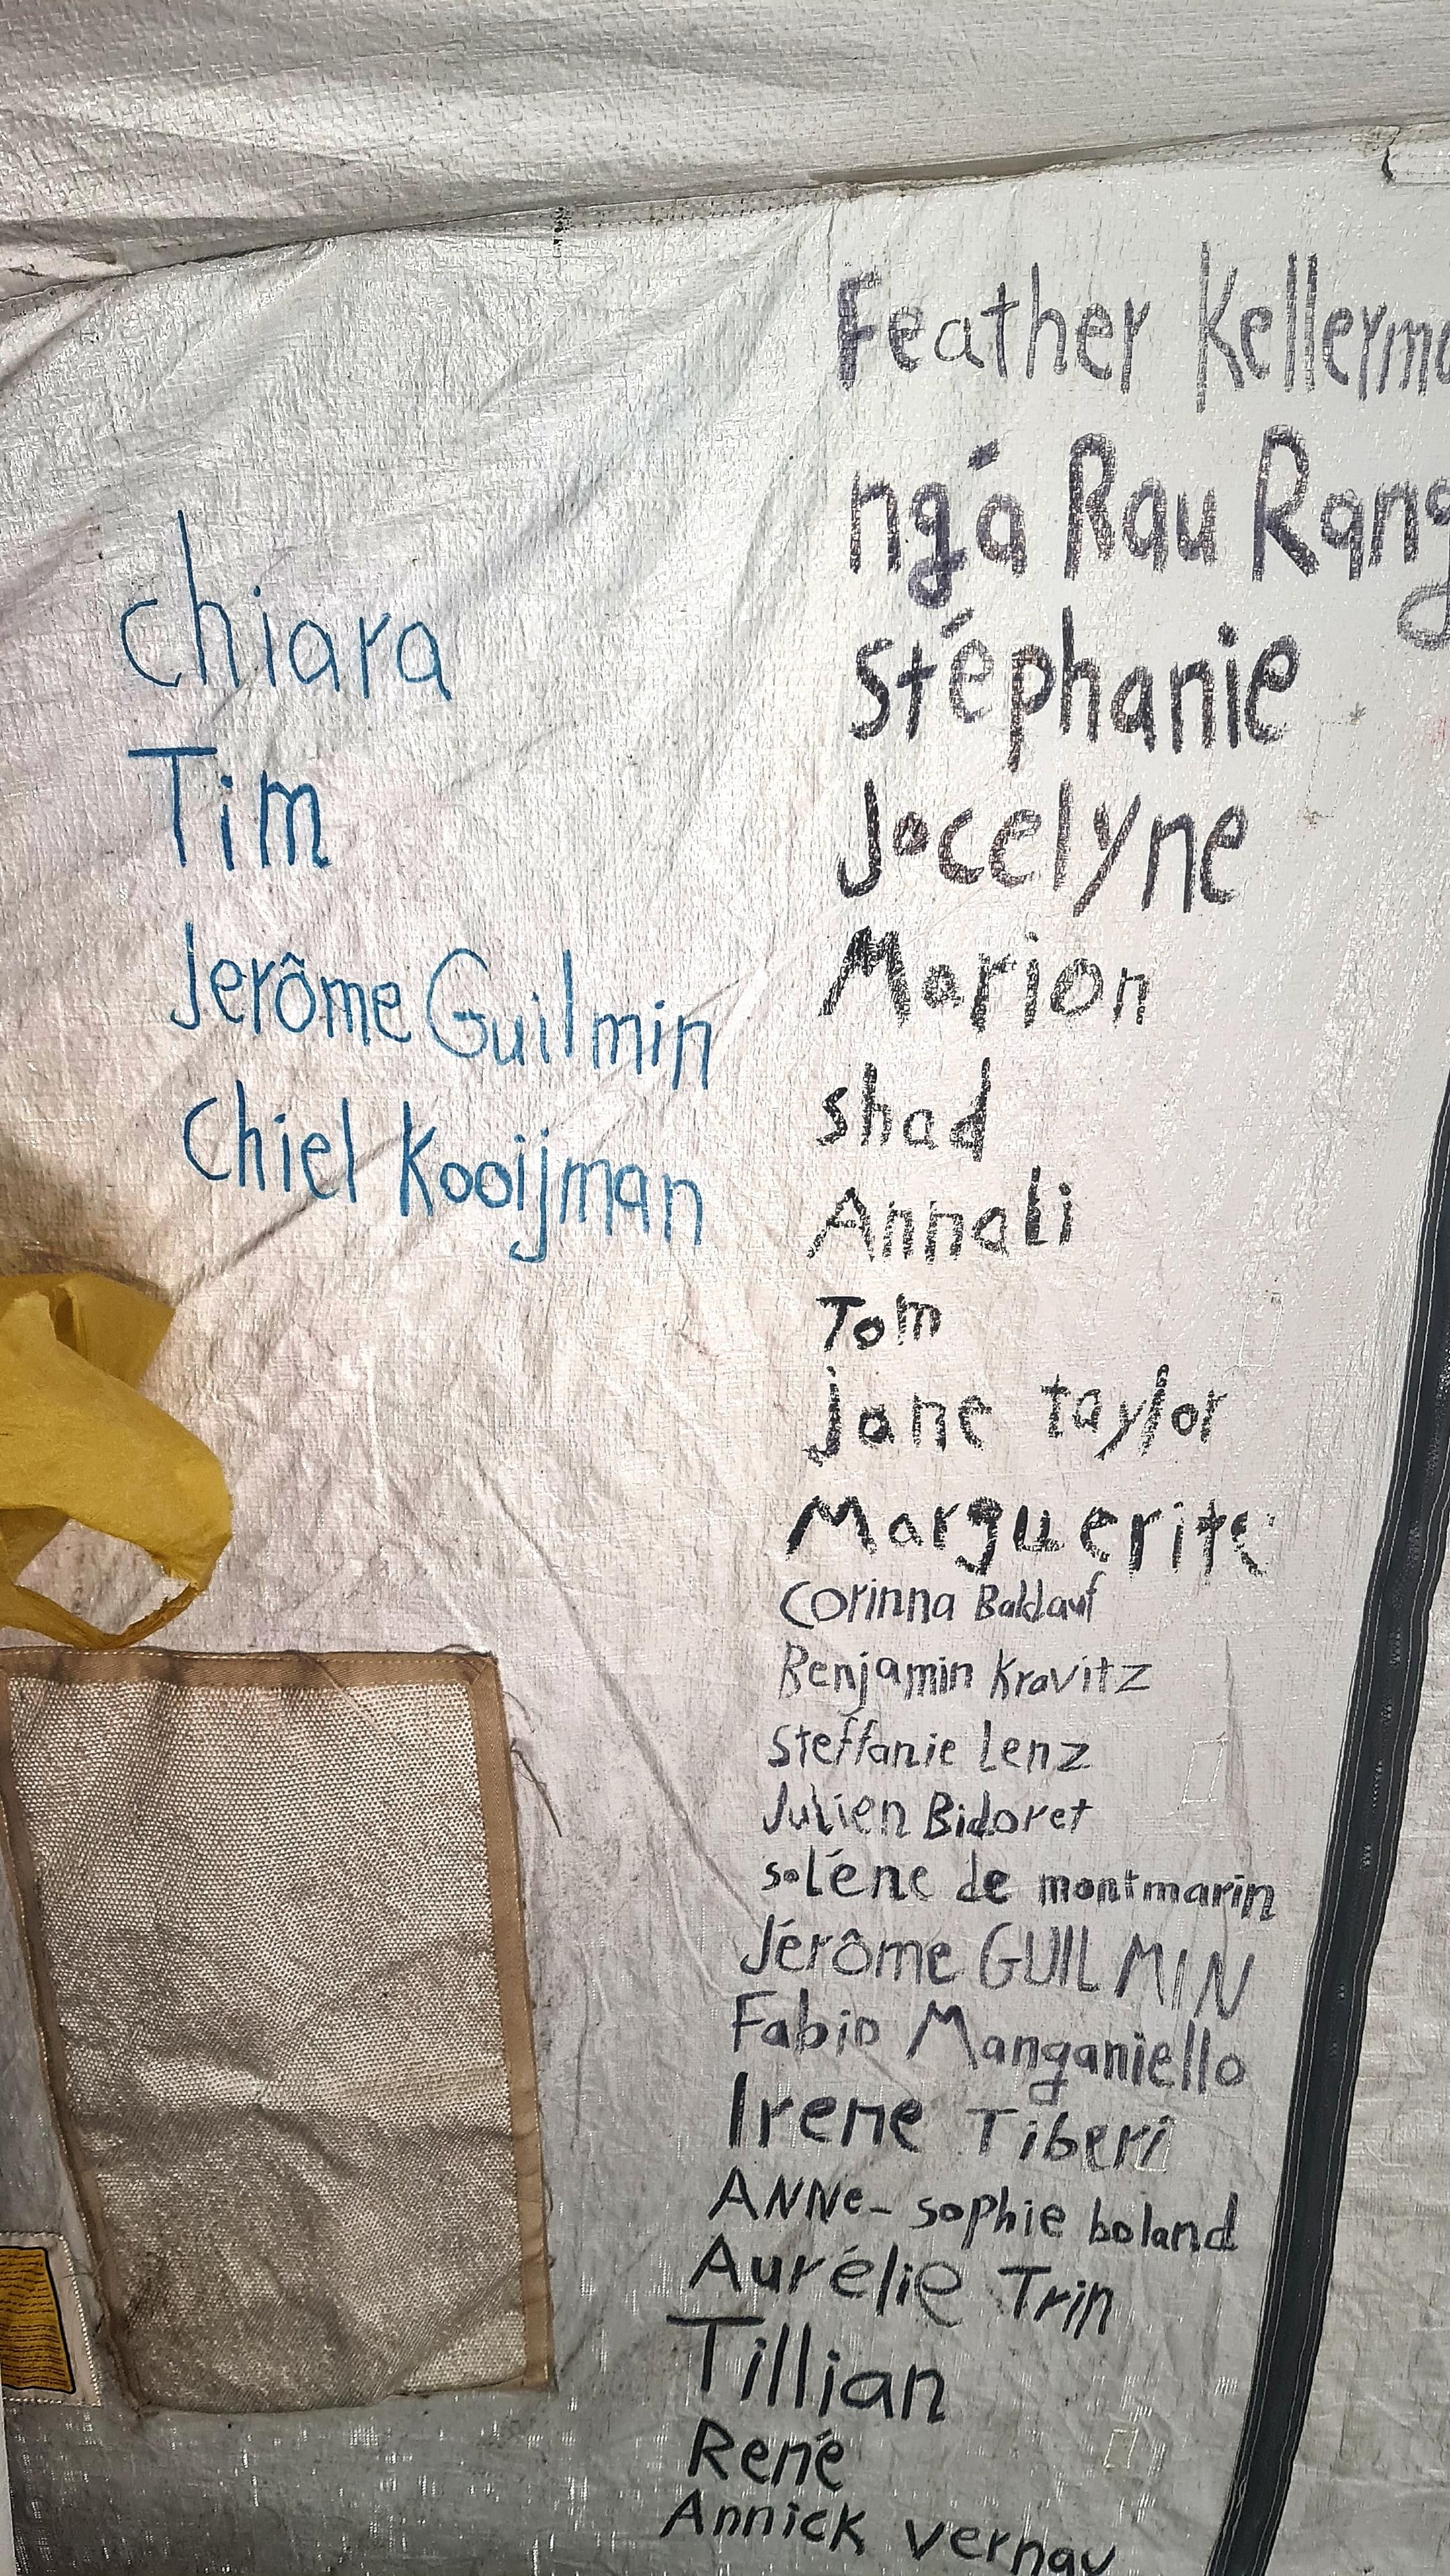 chiara
Tim
Jerôme Guilmin
Chiel Kooijman
Feather
ngá Rau
Stéphanie
Jocelyne
Marion
shad
Annali
Tom
jane taylor
Marguerite
Corinna Baldauf
Benjamin Kravitz
Steffanie Lenz
Julien Bidoret
solène de montmarin
Jérôme GUILMIN
Fabio Manganiello
Irene Tiberi
ANNe-sophie boland
Aurélie Trin
Tillian
René
Annick